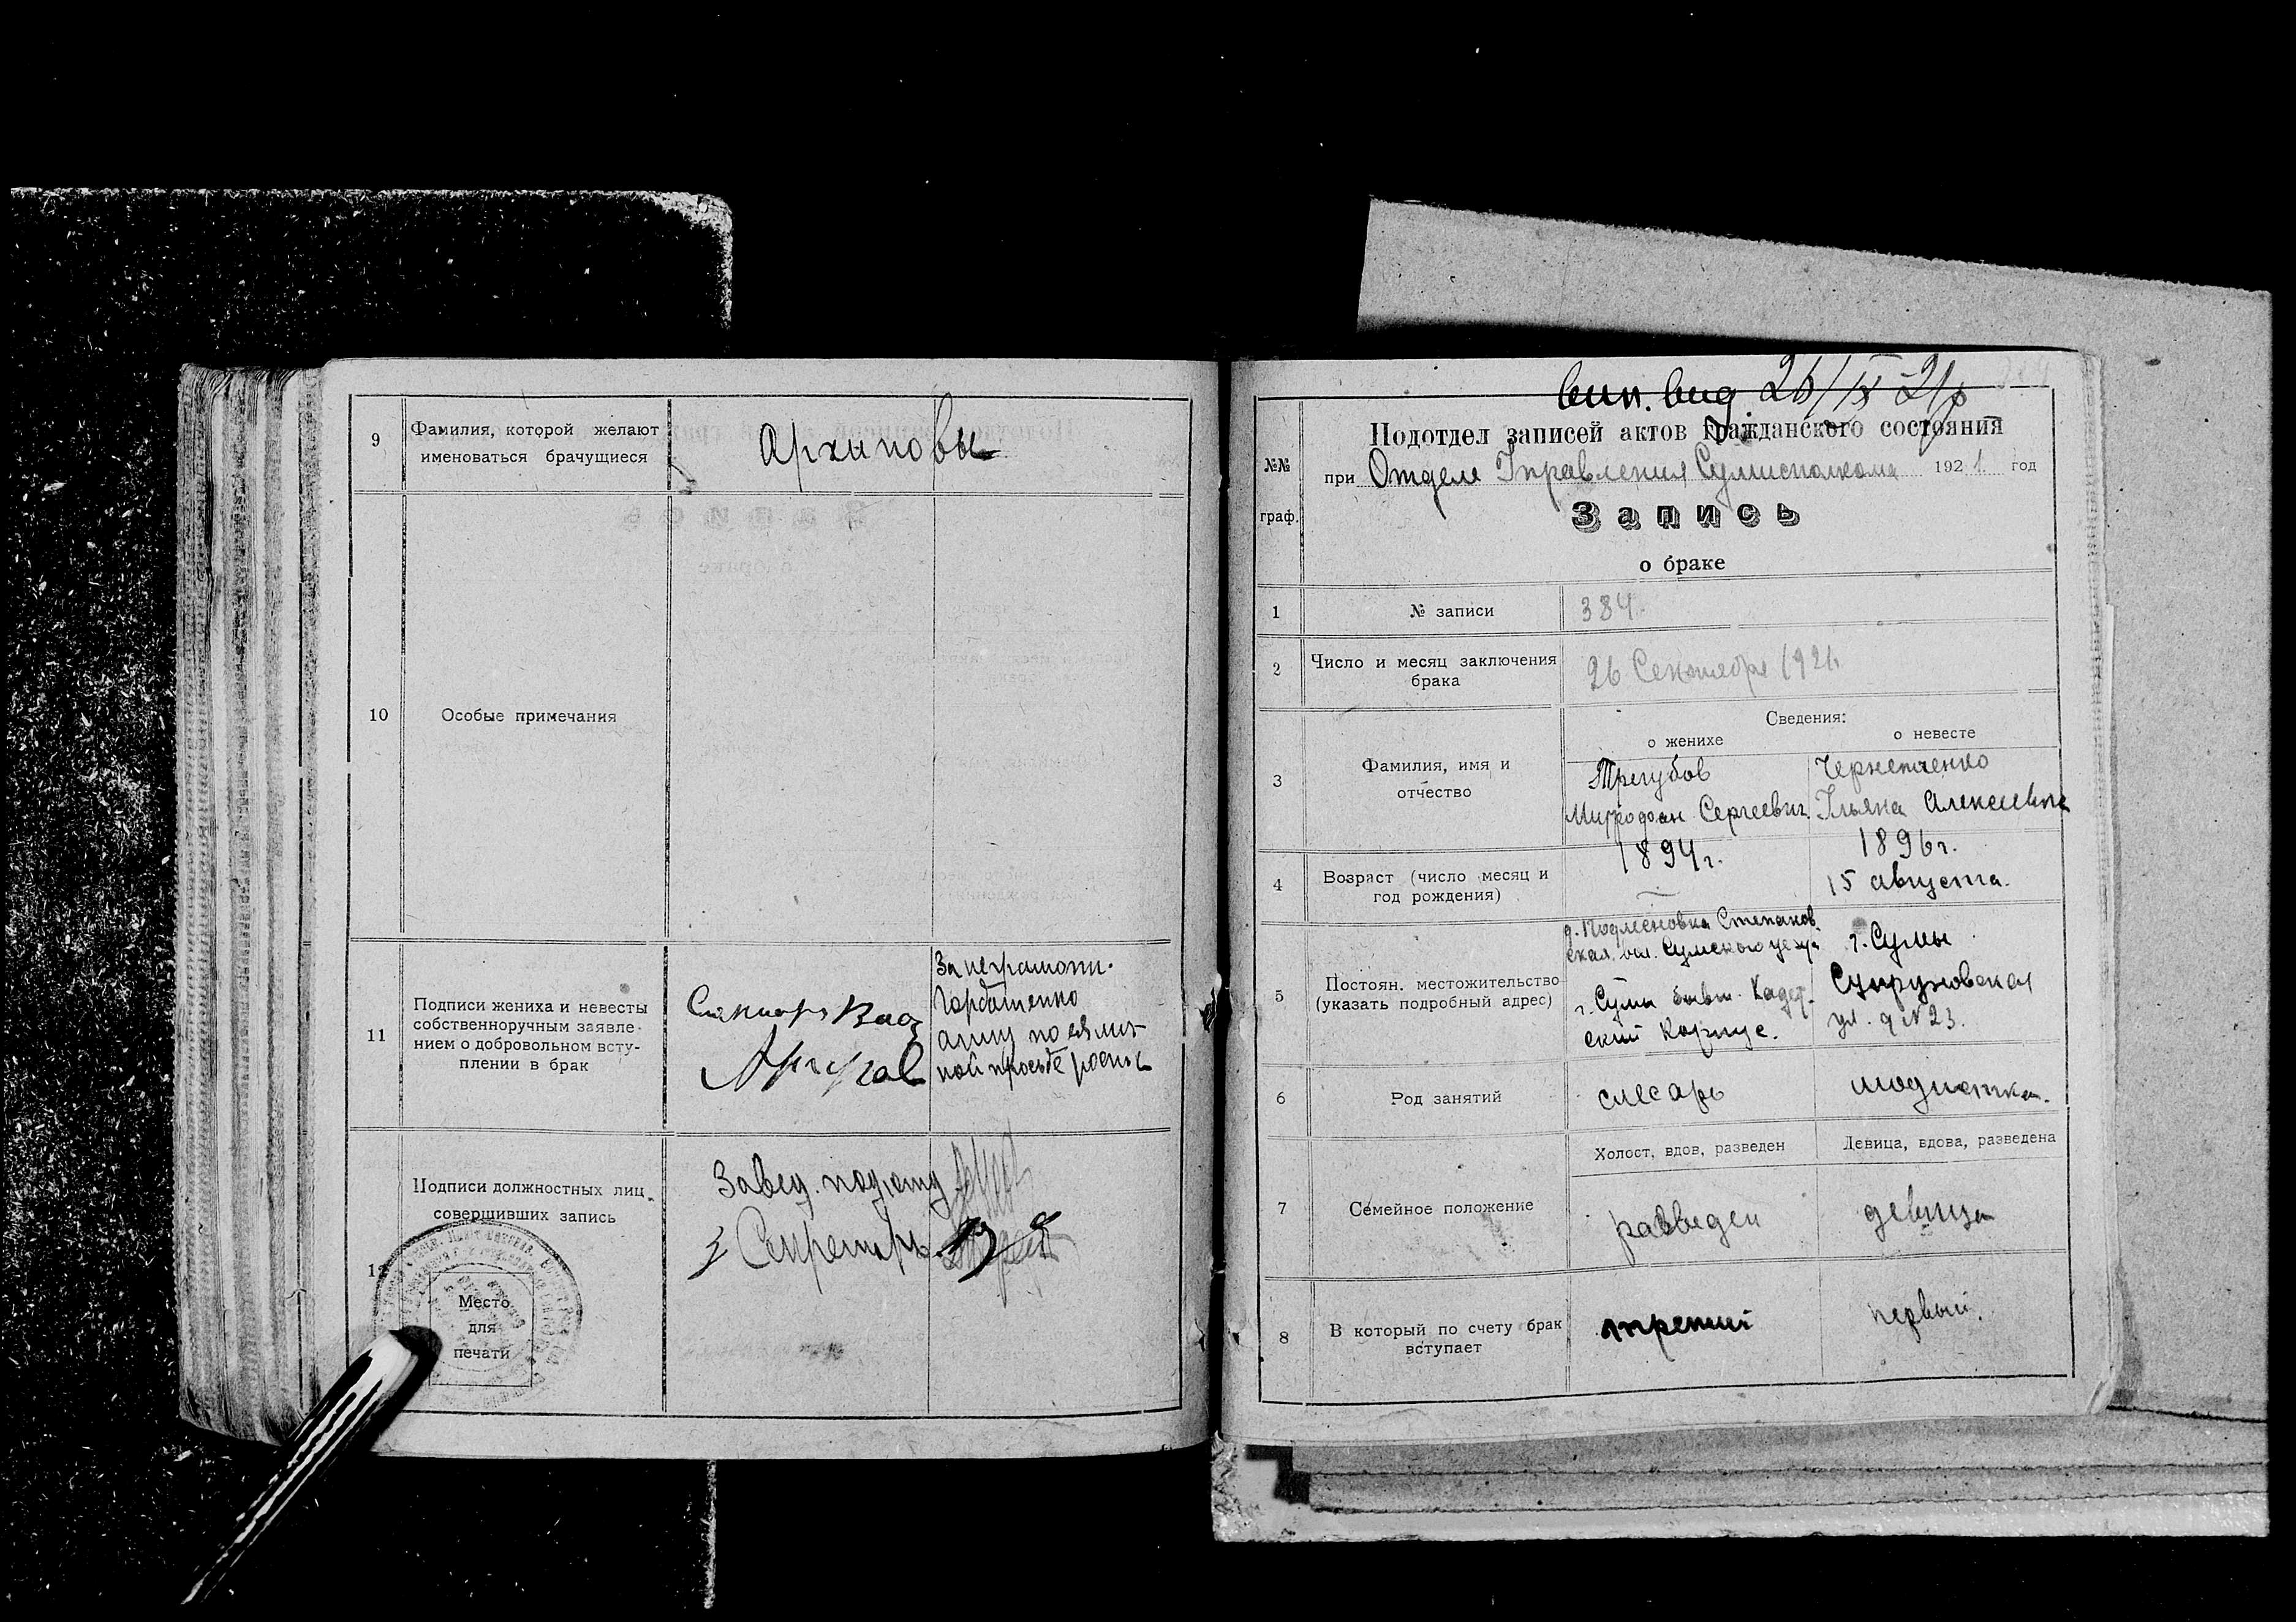 9
Фамилия, которой желают
именоваться брачущиеся
Архиповы
10
Особые примечания
11
Подписи жениха и невесты
собственноручным заявле-
нием о добровольном всту-
плении в брак
За неграмотн.
Горбатенко
Анну по ея лич-
ной просьбе
12
Подписи должностных лиц,
совершивших запись
Завед. подотд.
Секретарь
Место
для
печати
вып. вид 26/IX 21
№№
граф.
Подотдел записей актов Гражданского состояния
при Отделе Управления Сумисполкома 1921 год
Запись
о браке
1
№ записи
384.
2
Число и месяц заключения
брака
26 Сентября 1921
Сведения:
о женихе
о невесте
3
Фамилия, имя и
отчество
Трегубов
Митродоан Сергеевич
Чернетченко
Ульяна Алексеевна
4
Возраст (число месяц и
год рождения)
1894 г.
1896 г.
15 августа.
5
Постоян. местожительство
(указать подробный адрес)
Степанов
ская вол. Сумского уезда
г. Сумы бывш. Кадет-
ский Корпус.
г. Сумы
Супруновская
ул. д № 23.
6
Род занятий
слесарь
модистка.
7
Семейное положение
Холост, вдов, разведен
Девица, вдова, разведена
разведен
девица
8
В который по счету брак
вступает
третий
первый.